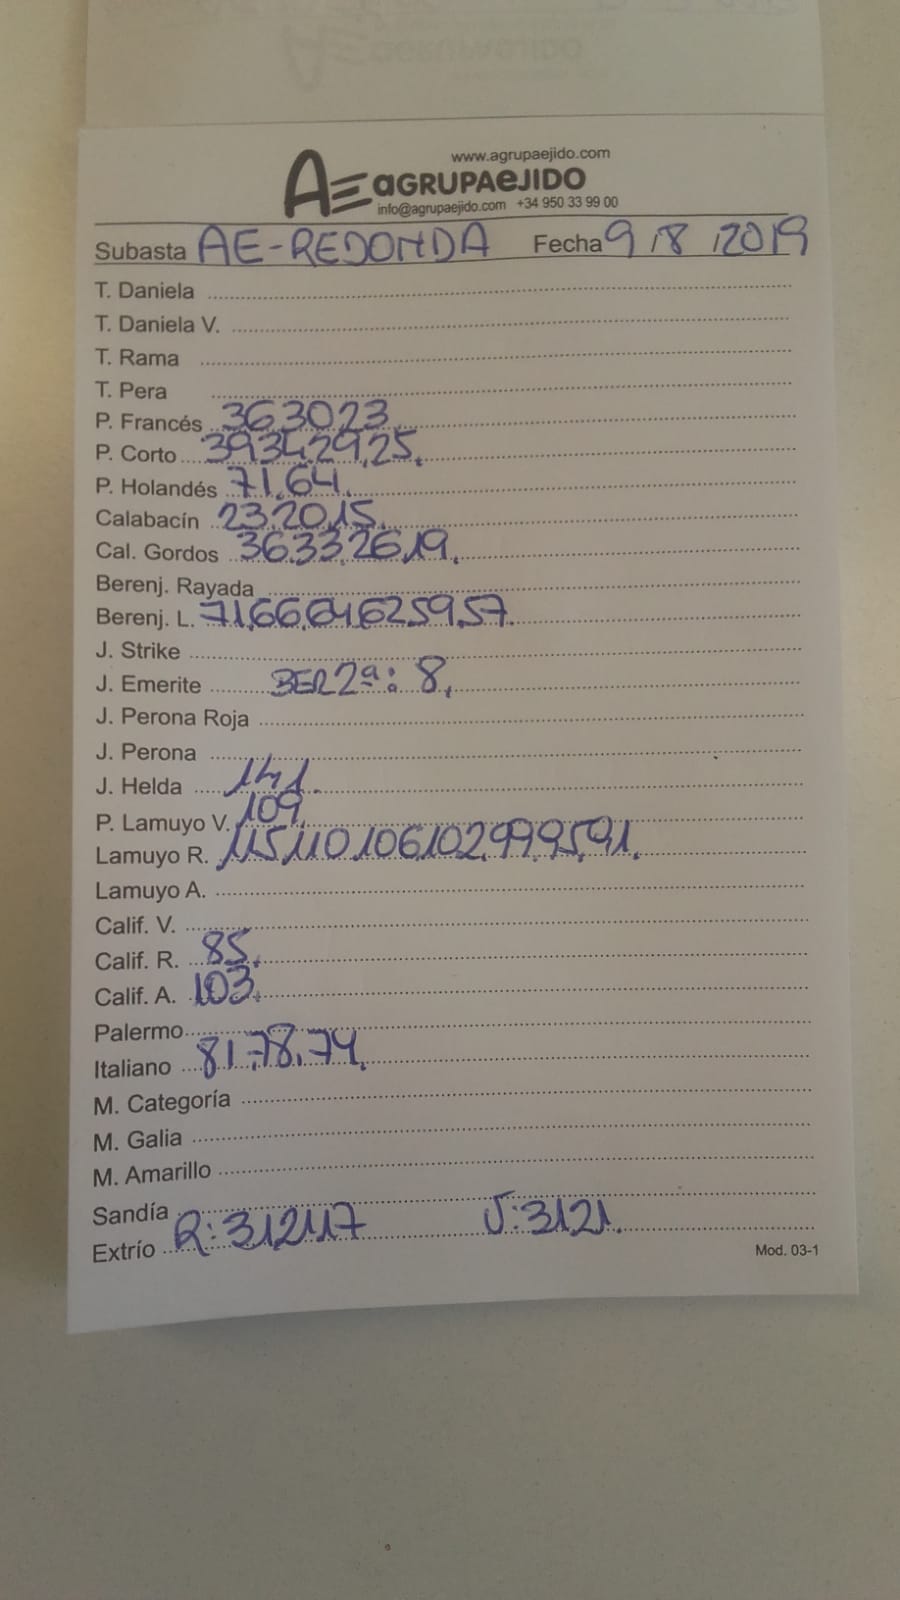 www.agrupaejido.com
AE aGRUPAeJIDO
info@agrupaejido.com +34 950 33 99 00
Subasta AE-REDONDA Fecha 9/8/2019
T. Daniela
T. Daniela V.
T. Rama
T. Pera
P. Francés 36.30.23
P. Corto 39.34.29.25.
P. Holandés 71.64.
Calabacín 23.20.15.
Cal. Gordos 36.33.26.19.
Berenj. Rayada
Berenj. L. 71.66.64.62.59.57.
J. Strike
J. Emerite BER 2ª: 8.
J. Perona Roja
J. Perona
J. Helda 141.
P. Lamuyo V. 109.
Lamuyo R. 115.110.106.102.99.95.91.
Lamuyo A.
Calif. V.
Calif. R. 85.
Calif. A. 103.
Palermo
Italiano 81.78.74.
M. Categoría
M. Galia
M. Amarillo
Sandía
Extrío R: 31.21.17 V: 31.21.
Mod. 03-1